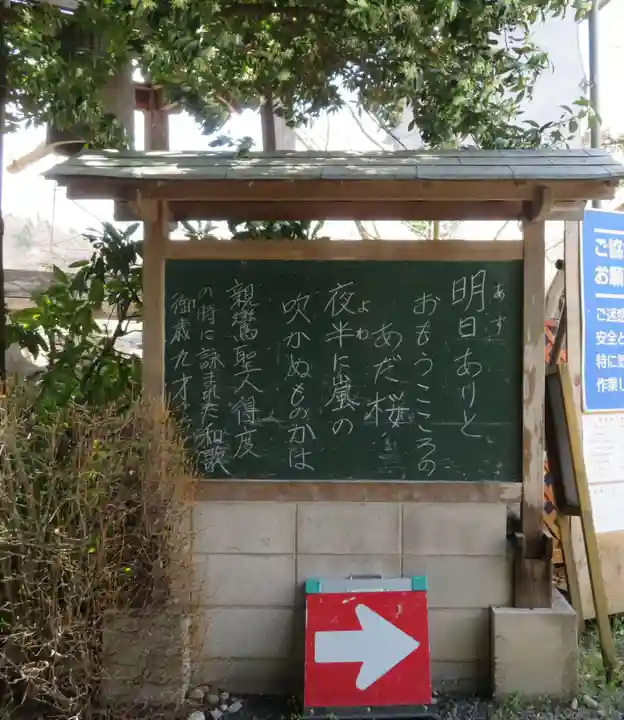 明日ありと
あす
おもうこころの
あだ桜
夜半に嵐の
よわ
吹かぬものかは
親鸞聖人得度
の時に詠まれた和歌
御歳九才
ご協
お願
ご迷
安全と
特に
作業し